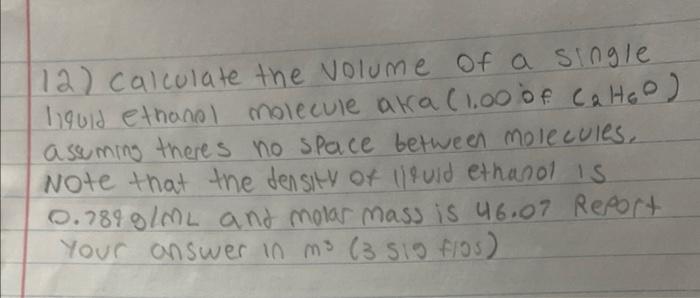 12) calculate the volume of a single
liquid ethanol molecule aka (1.00 of C2H6O)
assuming theres no space between molecules.
Note that the density of liquid ethanol is
0.789 g/mL and molar mass is 46.07 Report
Your answer in m³ (3 sig figs)